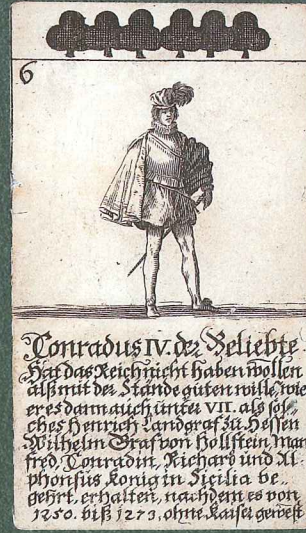 6
Conradus IV. der Beliebte
Hat das Reich nicht haben wollen
alß mit der Stände guten wille, wie
er es dann auch unter VII. als sol-
ches Henrich Landgraf zu Hessen
Wilhelm Graf von Hollstein Man
fred, Conradin, Richard und Al-
phonsus König in Sicilia be-
gehrt, erhalten, nachdem es von
1250. biß 1273, ohne Kaiser geweßt